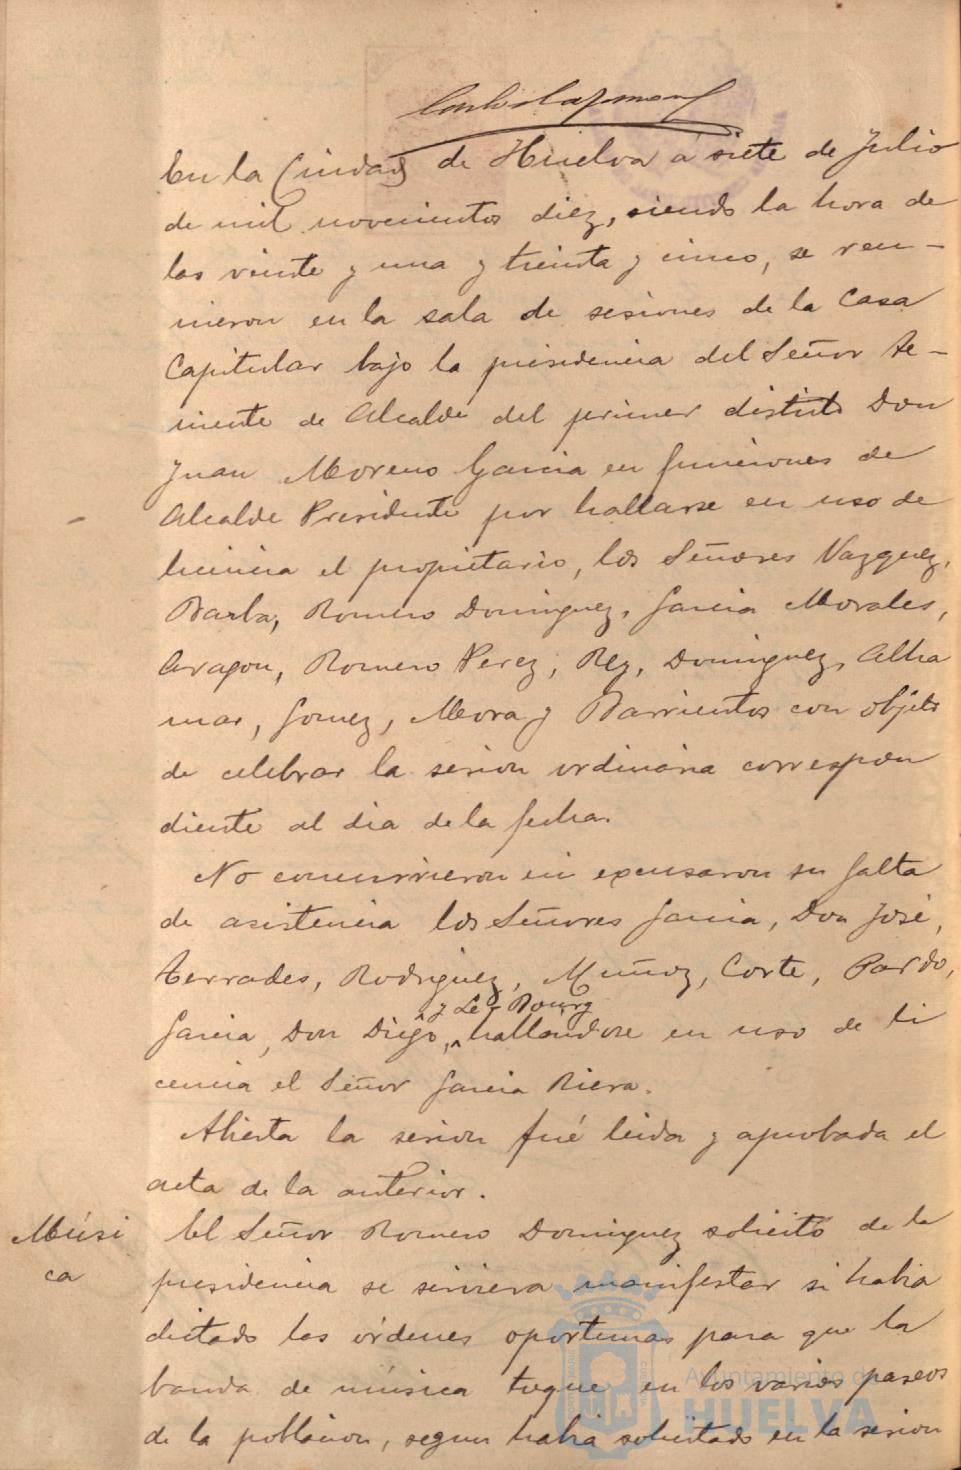 En la Ciudad de Huelva á siete de Julio
de mil novecientos diez, siendo la hora de
las veinte y una y treinta y cinco, se reu-
nieron en la sala de sesiones de la Casa
Capitular bajo la presidencia del Señor Te-
niente de Alcalde del primer distrito Don
Juan Moreno Garcia en funciones de
Alcalde Presidente por hallarse en uso de
licencia el propietario, los Señores Vazquez,
Barba, Romero Dominguez, Garcia Morales,
Aragon, Romero Perez, Rey, Dominguez, Alha
mar, Gomez, Mora y Barrientos con objeto
de celebrar la sesion ordinaria correspon
diente al dia de la fecha.
No concurrieron ni excusaron su falta
de asistencia los Señores Garcia, Don José,
Terrades, Rodriguez, Muñoz, Corte, Pardo,
y Le Bourg
Garcia, Don Diego, hallandose en uso de li
cencia el Señor Garcia Riera.
Abierta la sesion fué leida y aprobada el
acta de la anterior.
Músi
ca
El Señor Romero Dominguez solicitó de la
presidencia se sirviera manifestar si habia
dictado las órdenes oportunas para que la
banda de música toque en los varios paseos
de la poblacion, segun habia solicitado en la sesion
Ayuntamiento de
HUELVA